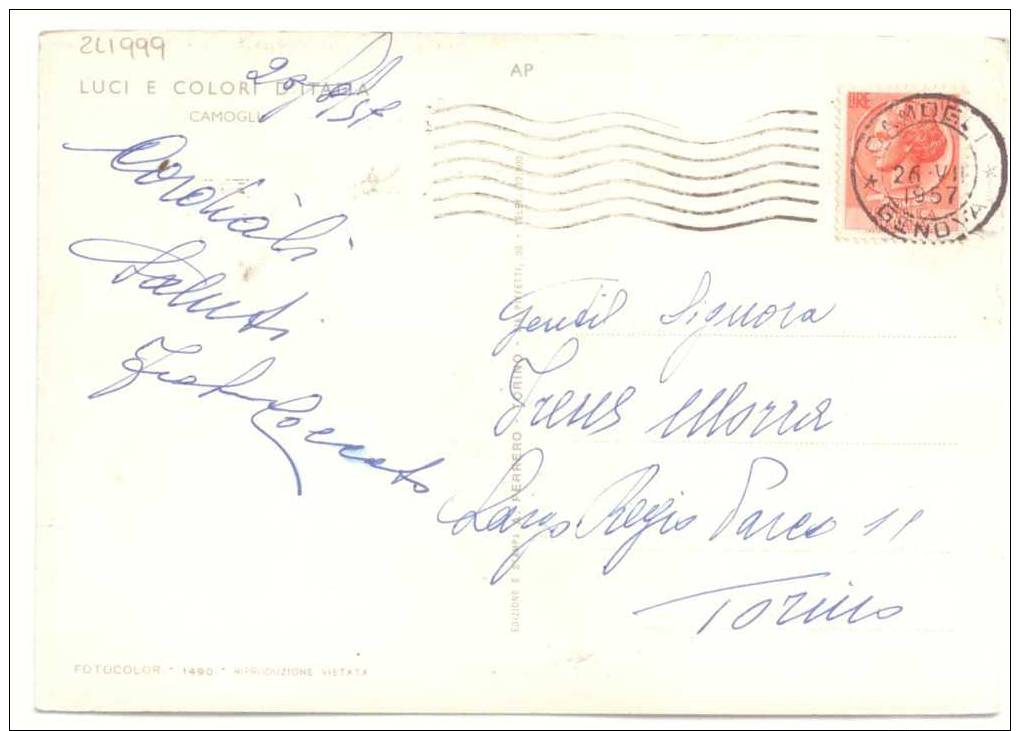 LUCI E COLORI D'ITALIA
CAMOGLI
AP
LIRE
CAMOGLI
26 VII
1957
GENOVA
Cordiali
Saluti
Gentil Signora
Irene Morra
Largo Regio Parco 11
Torino
FERRERO - TORINO
FOTOCOLOR - 1490 - RIPRODUZIONE VIETATA